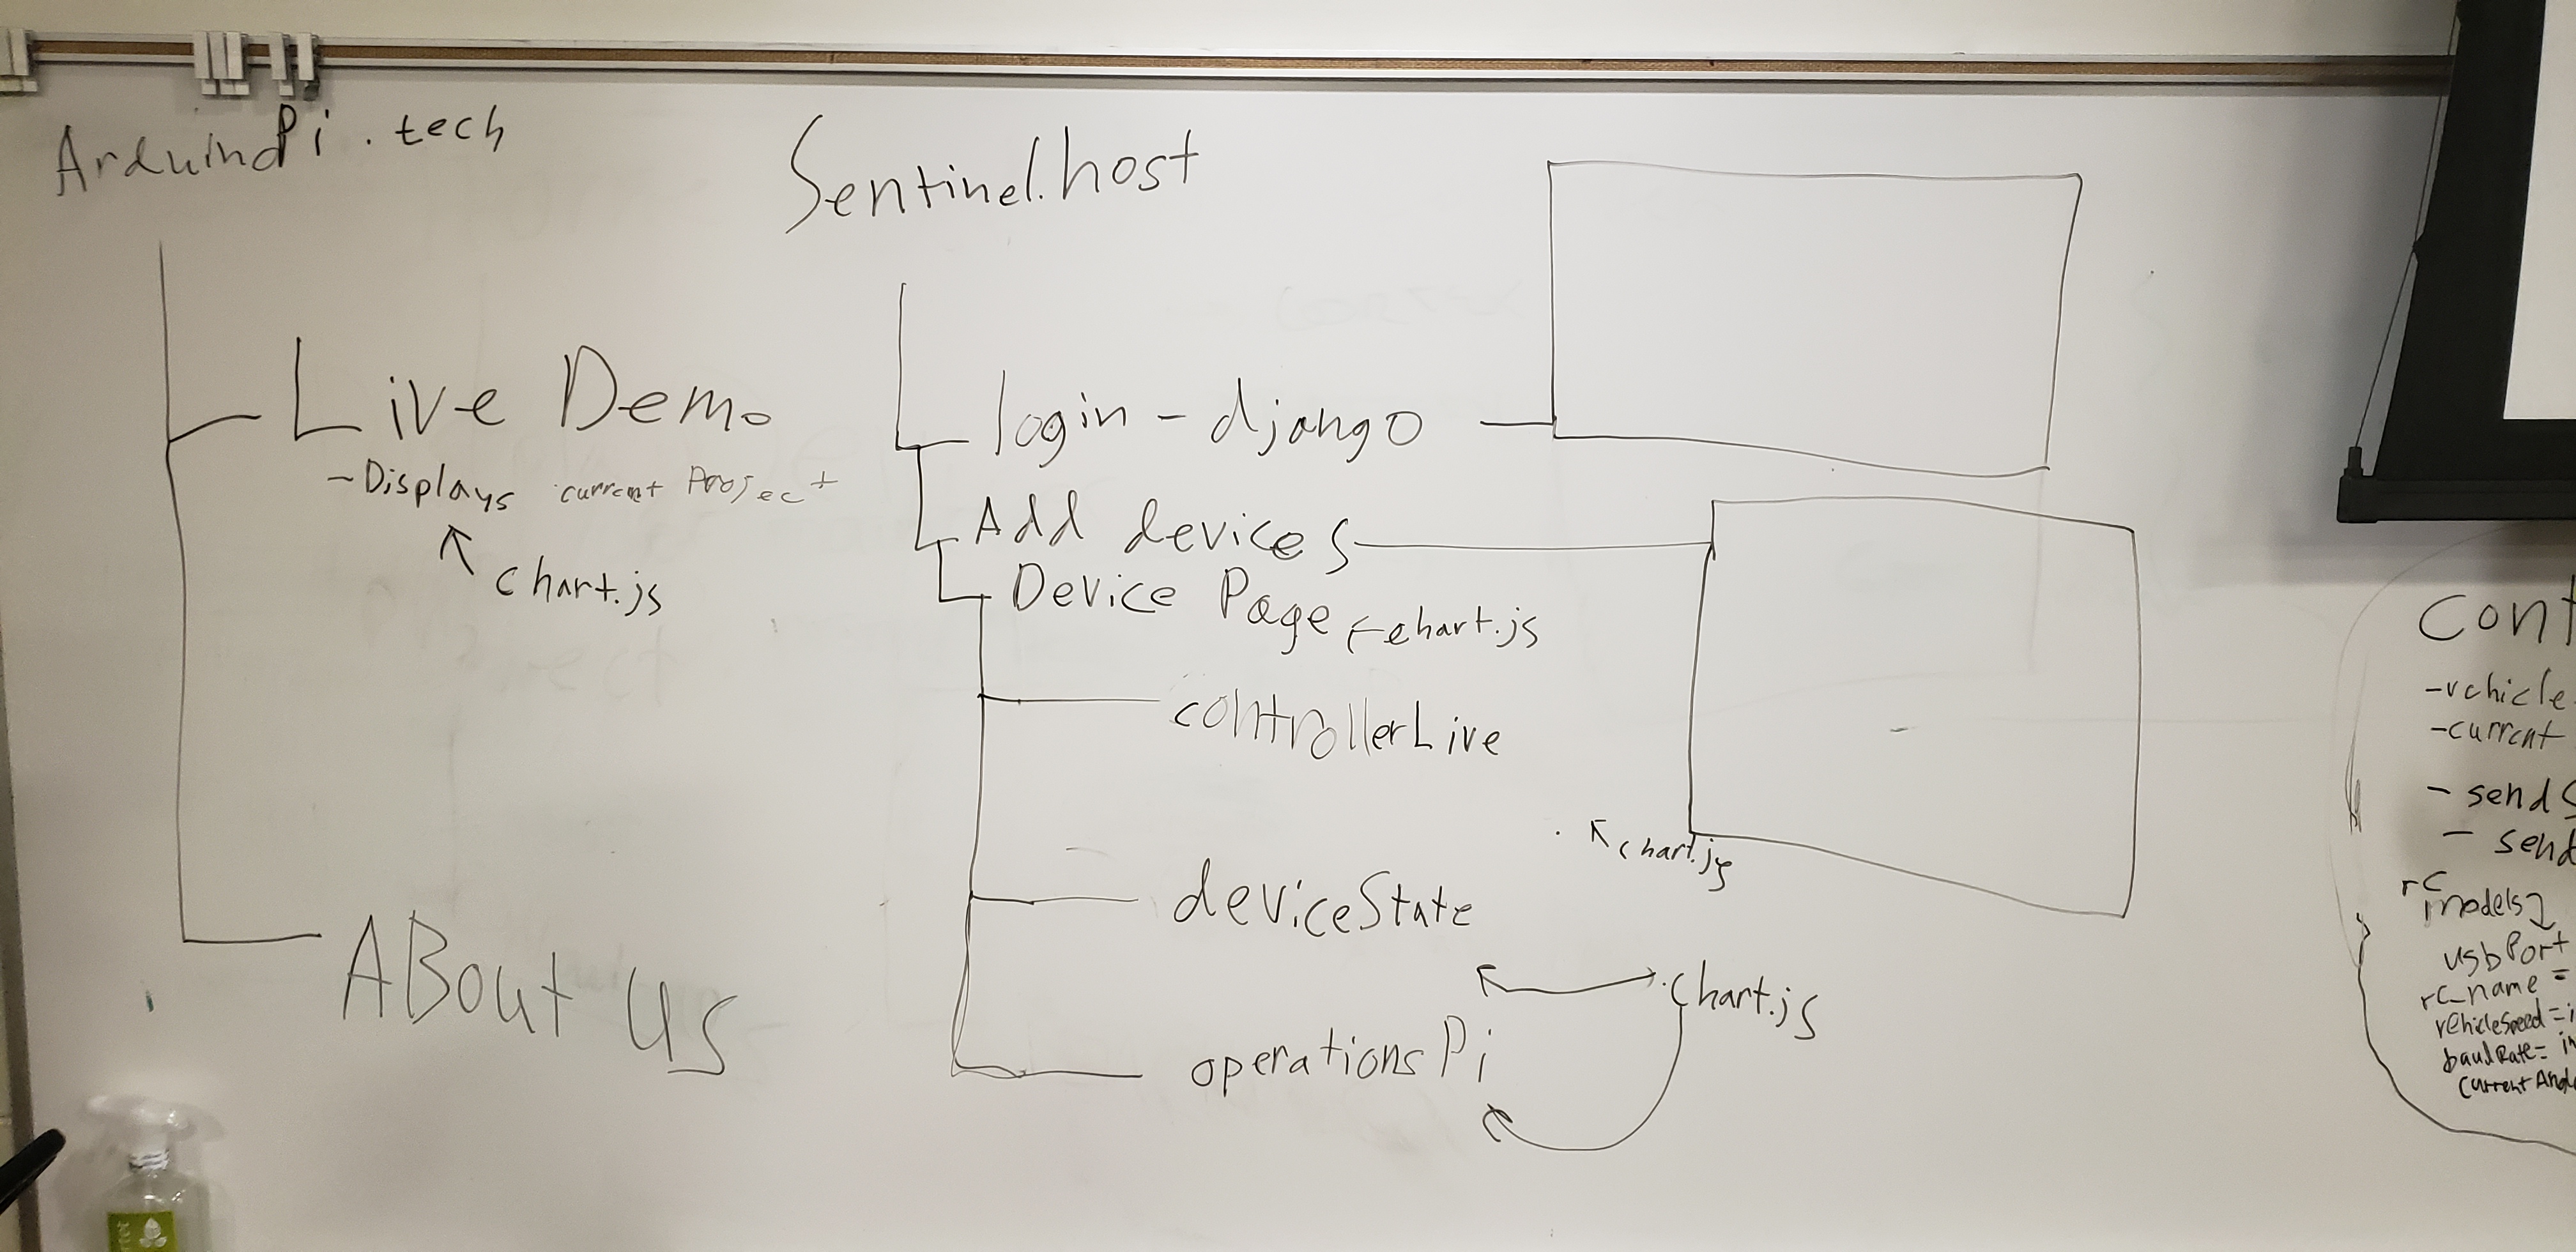 ArduinoPi.tech
Live Demo
-Displays current Project
chart.js
ABout us
Sentinel.host
login - django
Add devices
Device Page ←chart.js
controllerLive
chart.js
deviceState
chart.js
operationsPi
-vehicle
-current
- send
- send
rc
models
usbPort
rc_name =
vehicleSpeed = i
baudRate= in